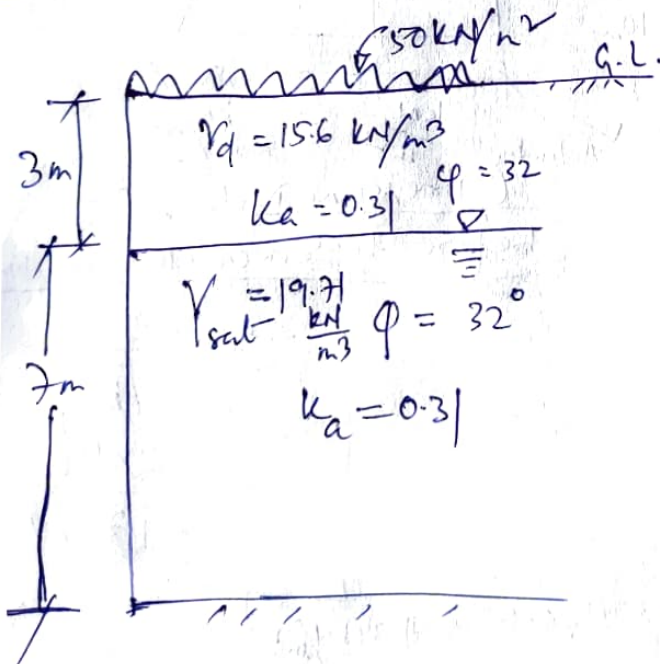 50KN/m²
G.L.
γd = 15.6 KN/m³
3m
φ = 32
Ka = 0.31
γsat = 19.71 KN/m³ φ = 32°
7m
Ka = 0.31